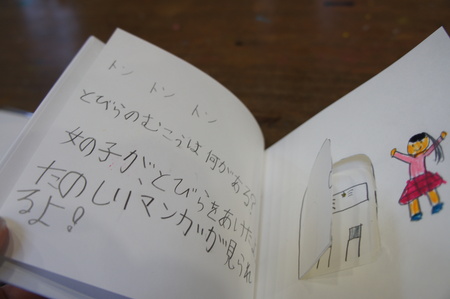 トン トン トン
とびらのむこうは何がある?
女の子がとびらをあけたら
たのしいマンガが見られ
るよ!